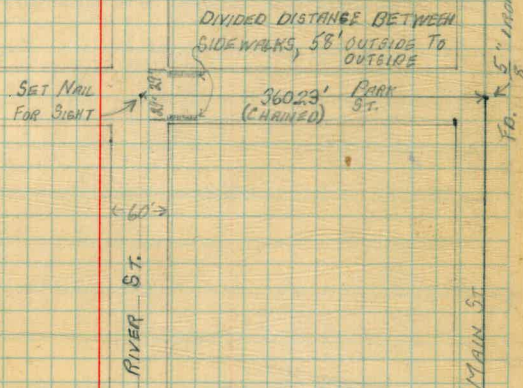 DIVIDED DISTANCE BETWEEN
SIDEWALKS, 58' OUTSIDE TO
OUTSIDE
SET NAIL
FOR SIGHT
29' 29'
360.23'
(CHAINED)
PARK
ST.
FD. 5/8" IRON
60'
RIVER ST.
MAIN ST.